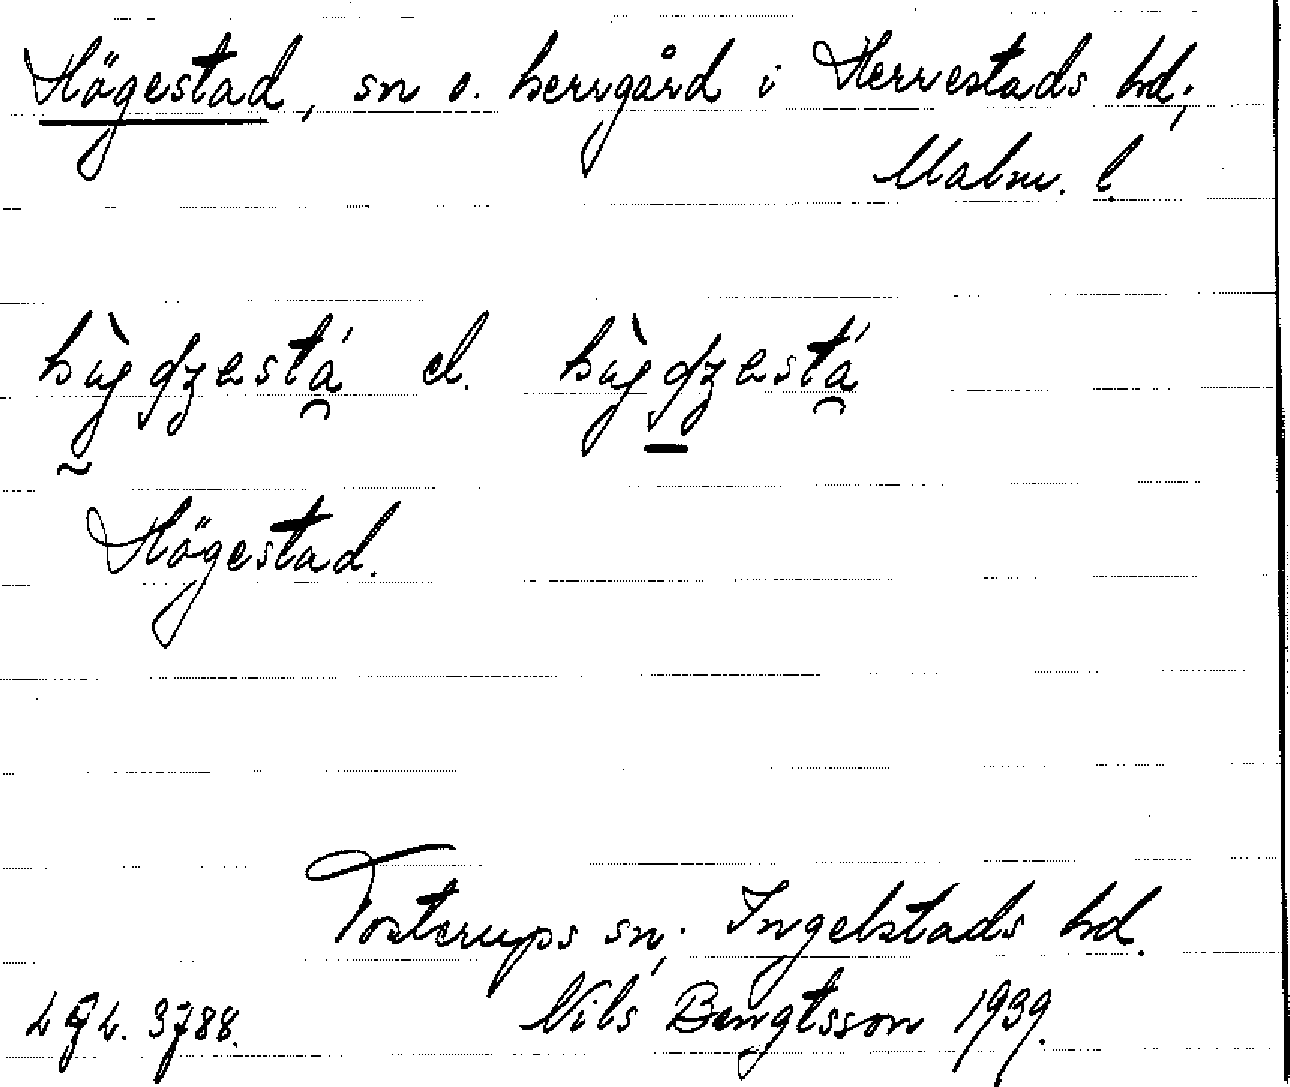 Högestad, sn o. herrgård i Herrestads hd;
Malm. l.
el.
Högestad.
Tosterups sn; Ingelstads hd.
Nils Bengtsson 1939.
3788.